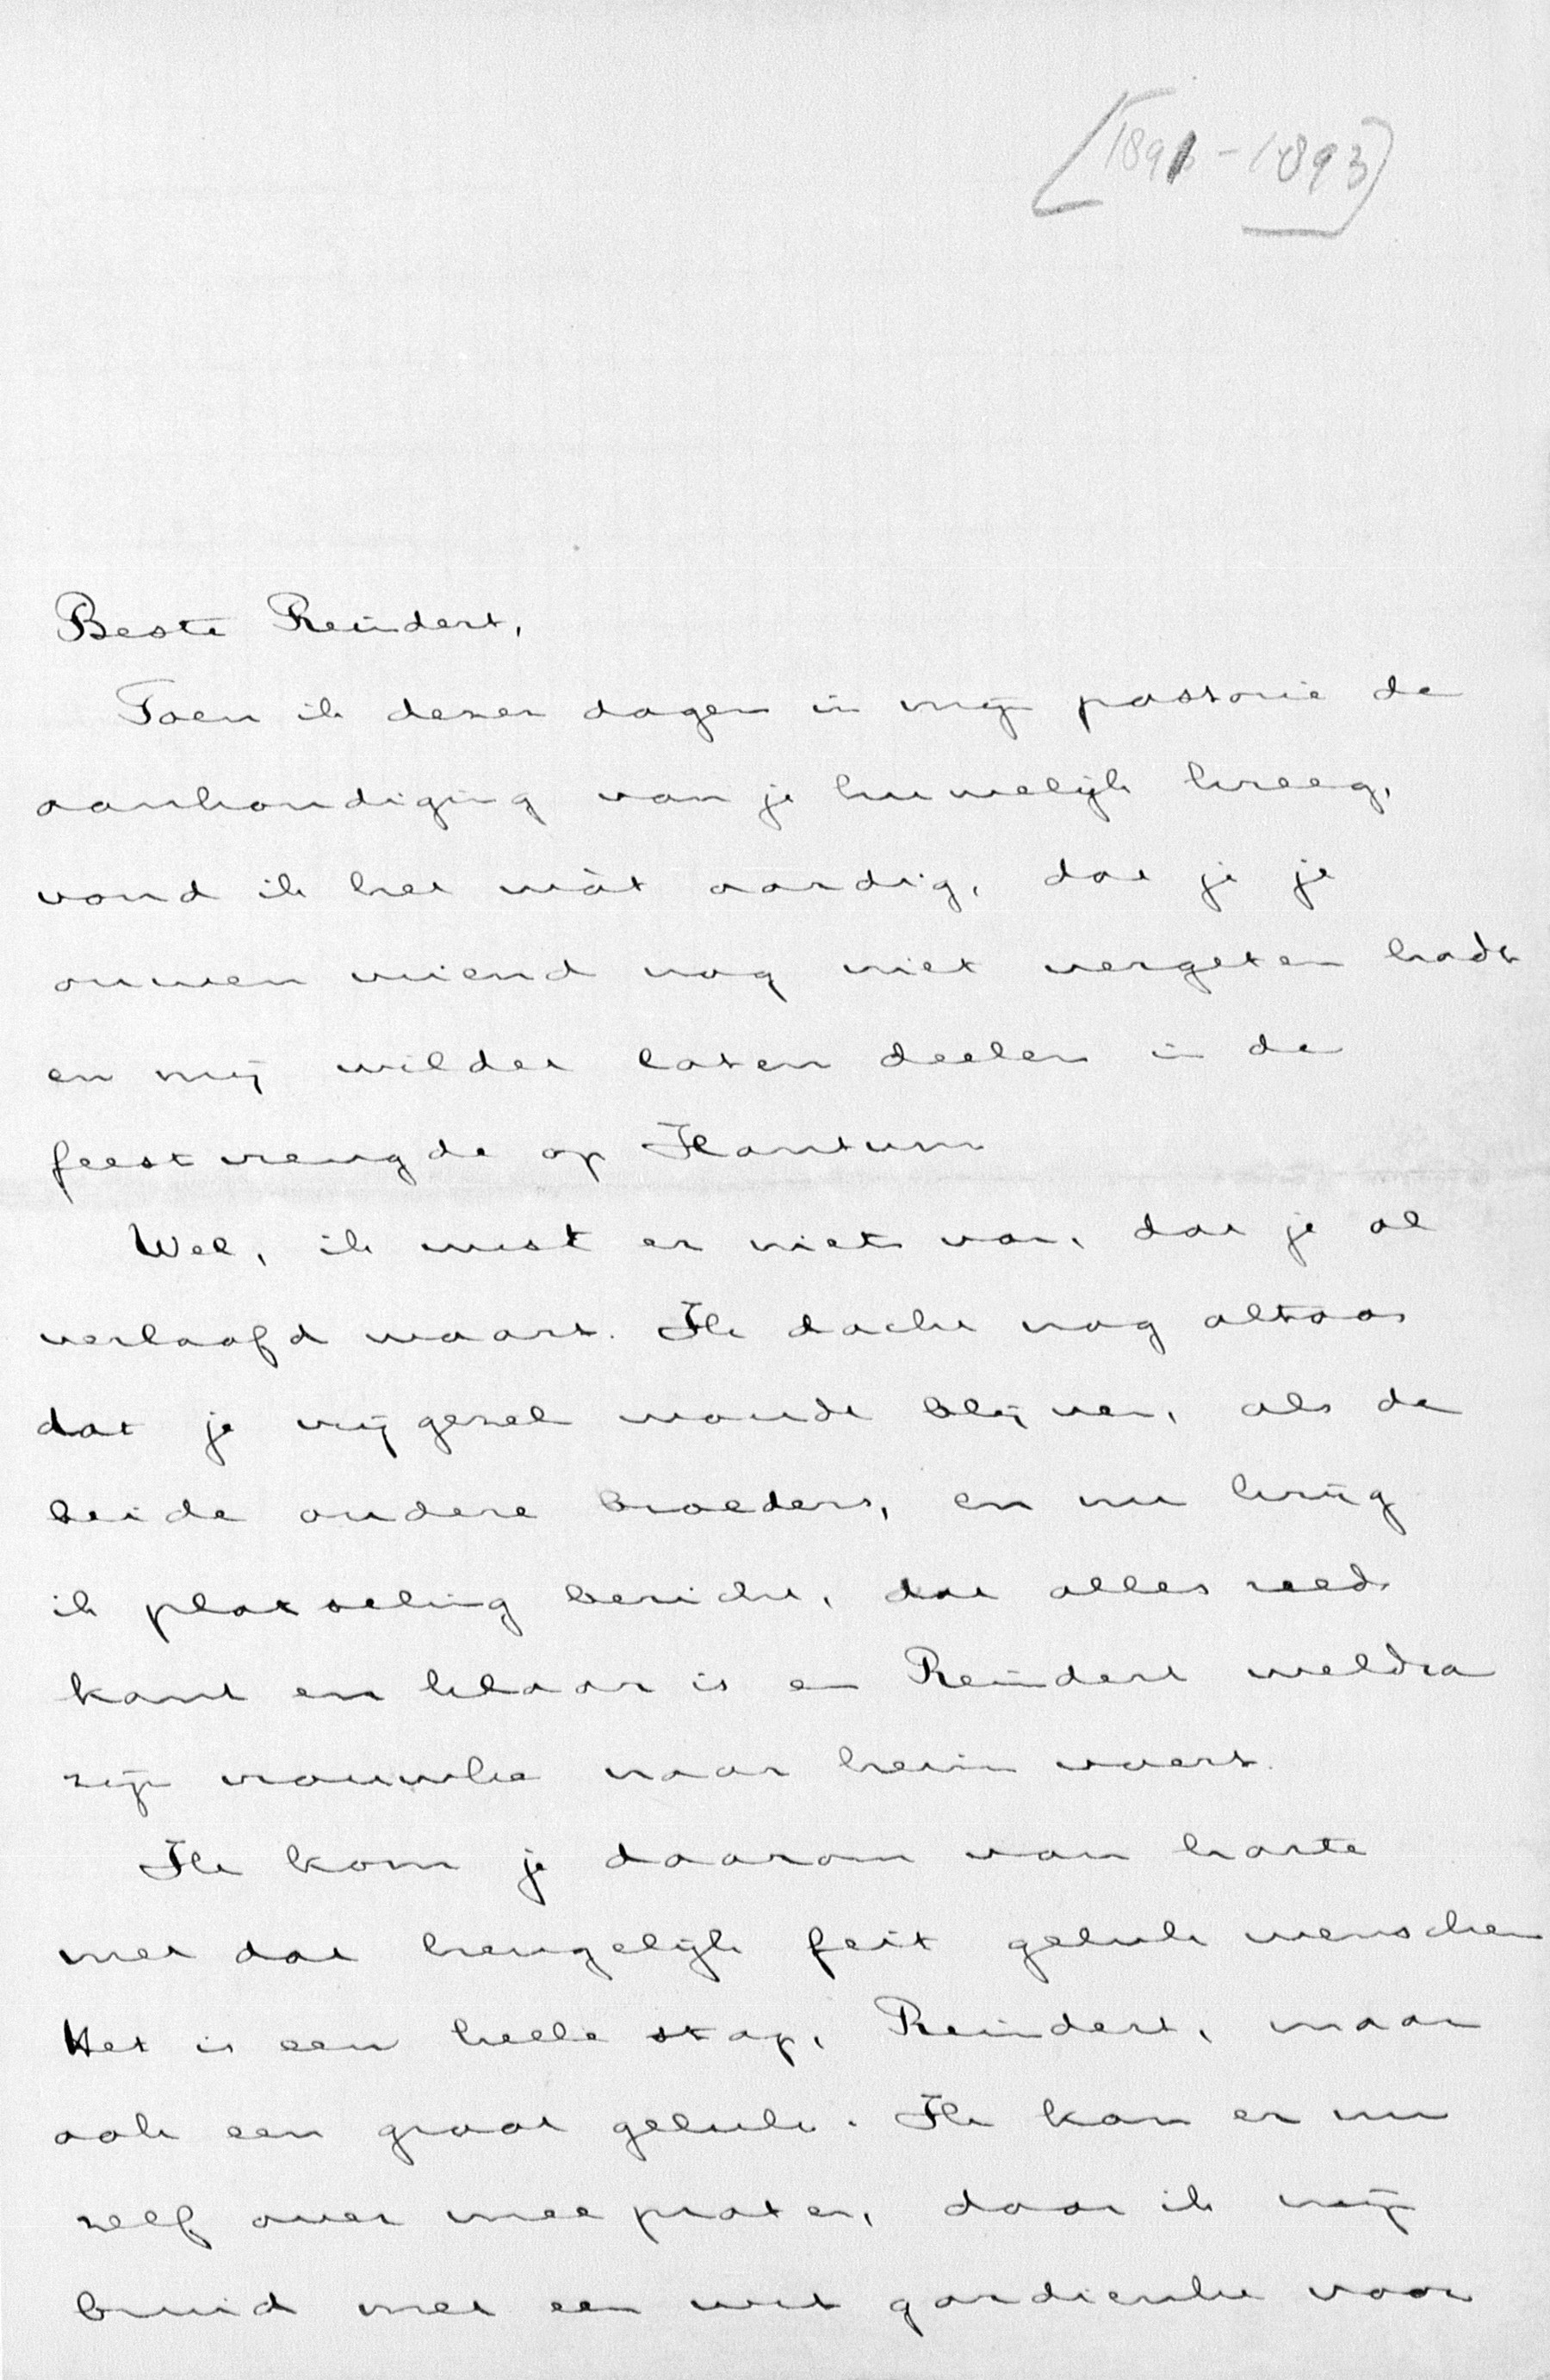 [1891-1893]
Beste Reindert,
Toen ik dezer dagen in mijn pastorie de
aankondiging van je huwelijk kreeg,
vond ik het wàt aardig, dat je je
ouwen vriend nog niet vergeten hadt
en mij wildet laten deelen in de
feestvreugde op Hantum
Wel, ik wist er niets van, dat je al
verloofd waart. Ik dacht nog altoos
dat je vrijgezel woudt blijven, als de
beide oudere broeders, en nu krijg
ik plotseling bericht, dat alles reeds
kant en klaar is en Reindert weldra
zijn vrouwke naar heim voert.
Ik kom je daarom van harte
met dat heugelijk feit geluk wenschen
Het is een heele stap, Reindert, maar
ook een groot geluk. Ik kan er nu
zelf over mee praten, daar ik mijn
bruid met een wit gordientje voor